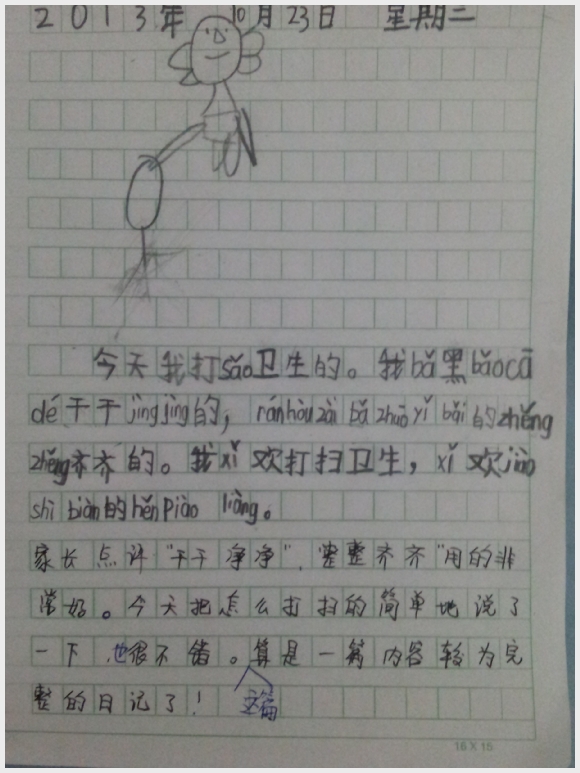 2013年 10月23日 星期二
今天我打sǎo卫生的。我bǎ黑bǎocā
dé干干jìngjìng的，ránhòuzàibǎzhuōyǐbǎi的zhěng
zhěng齐齐的。我xǐ欢打扫卫生，xǐ欢jiào
shìbiàn的hěnpiàoliàng。
家长点评"干干净净"，整整齐齐"用的非
常好。今天把怎么打扫的简单地说了
一下，也很不错。算是一篇内容较为完
整的日记了！这篇
16×15